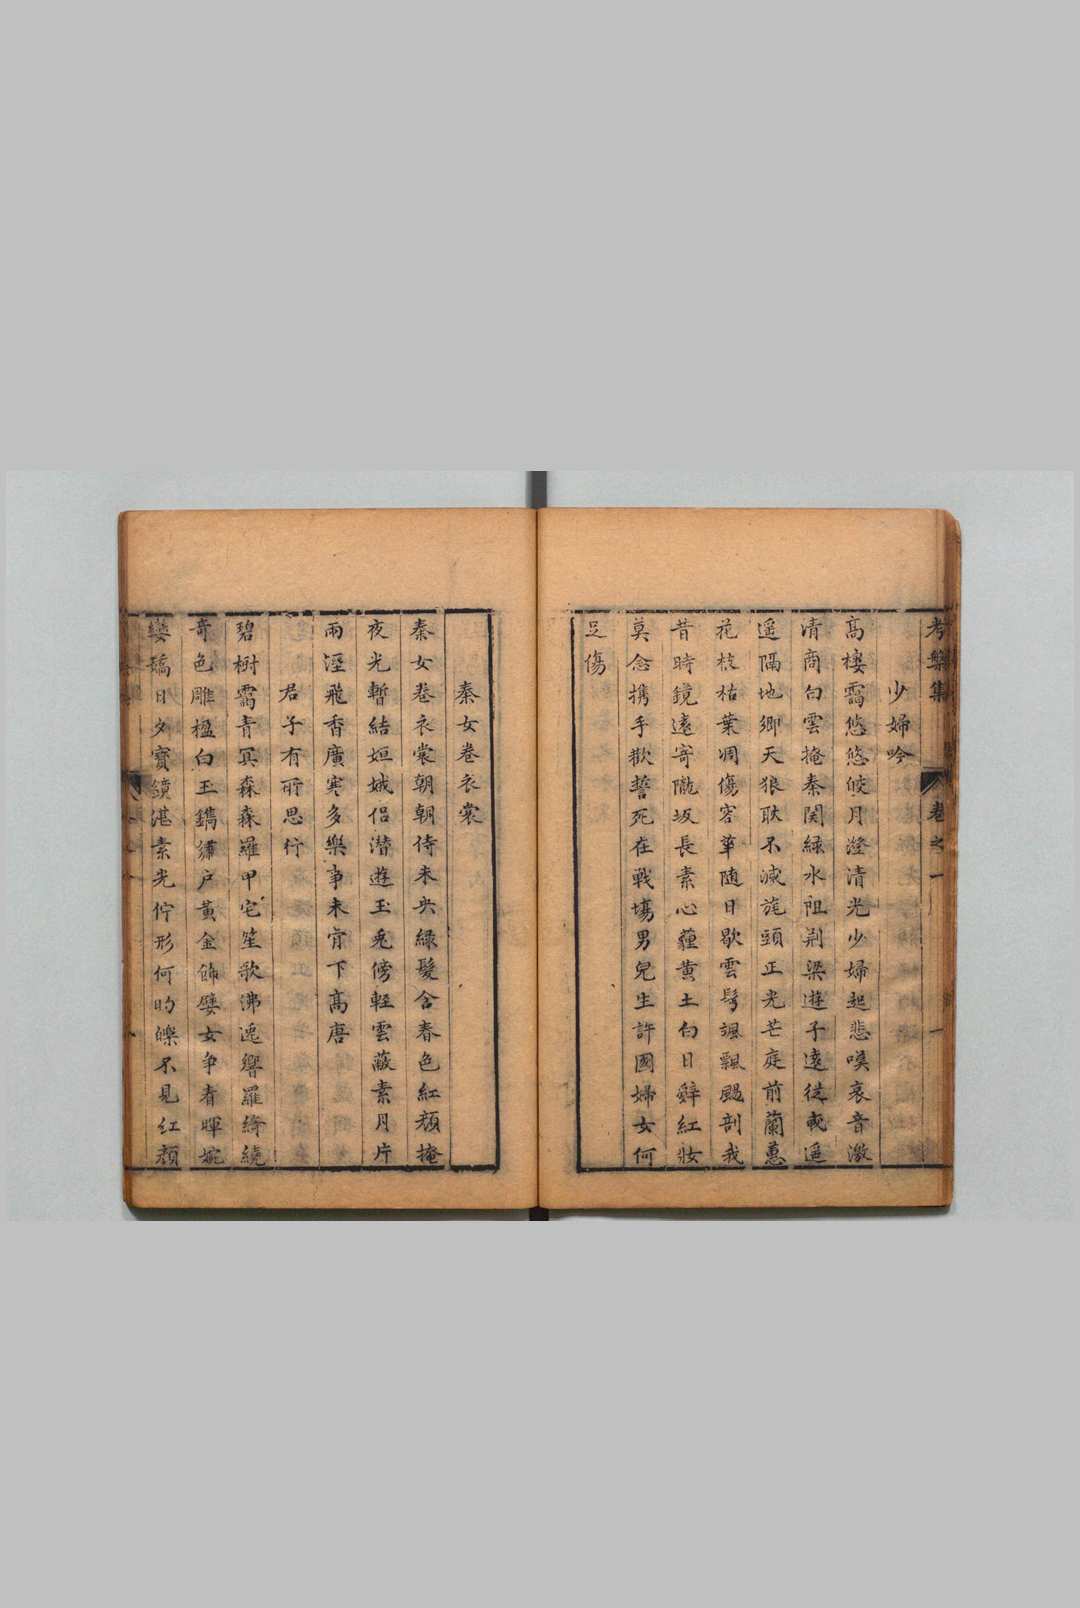 考槃集
卷之一
一
少婦吟
高樓靄悠悠皎月澄清光少婦起悲嘆哀音激
清商白雲掩秦関緑水阻荆梁遊子遠從戎遥
遥隔地卿天狼耿不滅旄頭正光芒庭前蘭蕙
花枝枯葉凋傷容華随日歇雲髩颯飄颺剖我
昔時鏡遠寄隴坂長素心薶黄土白日辭紅妝
莫念携手歓誓死在戰塲男兒生許國婦女何
足傷
秦女卷衣裳
秦女卷衣裳朝朝侍未央緑髮含春色紅顔掩
夜光暫結姮娥侣潛遊玉兎傍軽雲蔽素月片
雨溼飛香廣寒多樂事未宵下高唐
君子有所思行
碧樹靄青冥森森羅甲宅笙歌沸遞響羅綺繞
奇色雕楹白玉鐫繡戸黄金飾嬖女争春暉婉
孌矯日夕寳鏡湛素光佇形何昀皪不見红顔